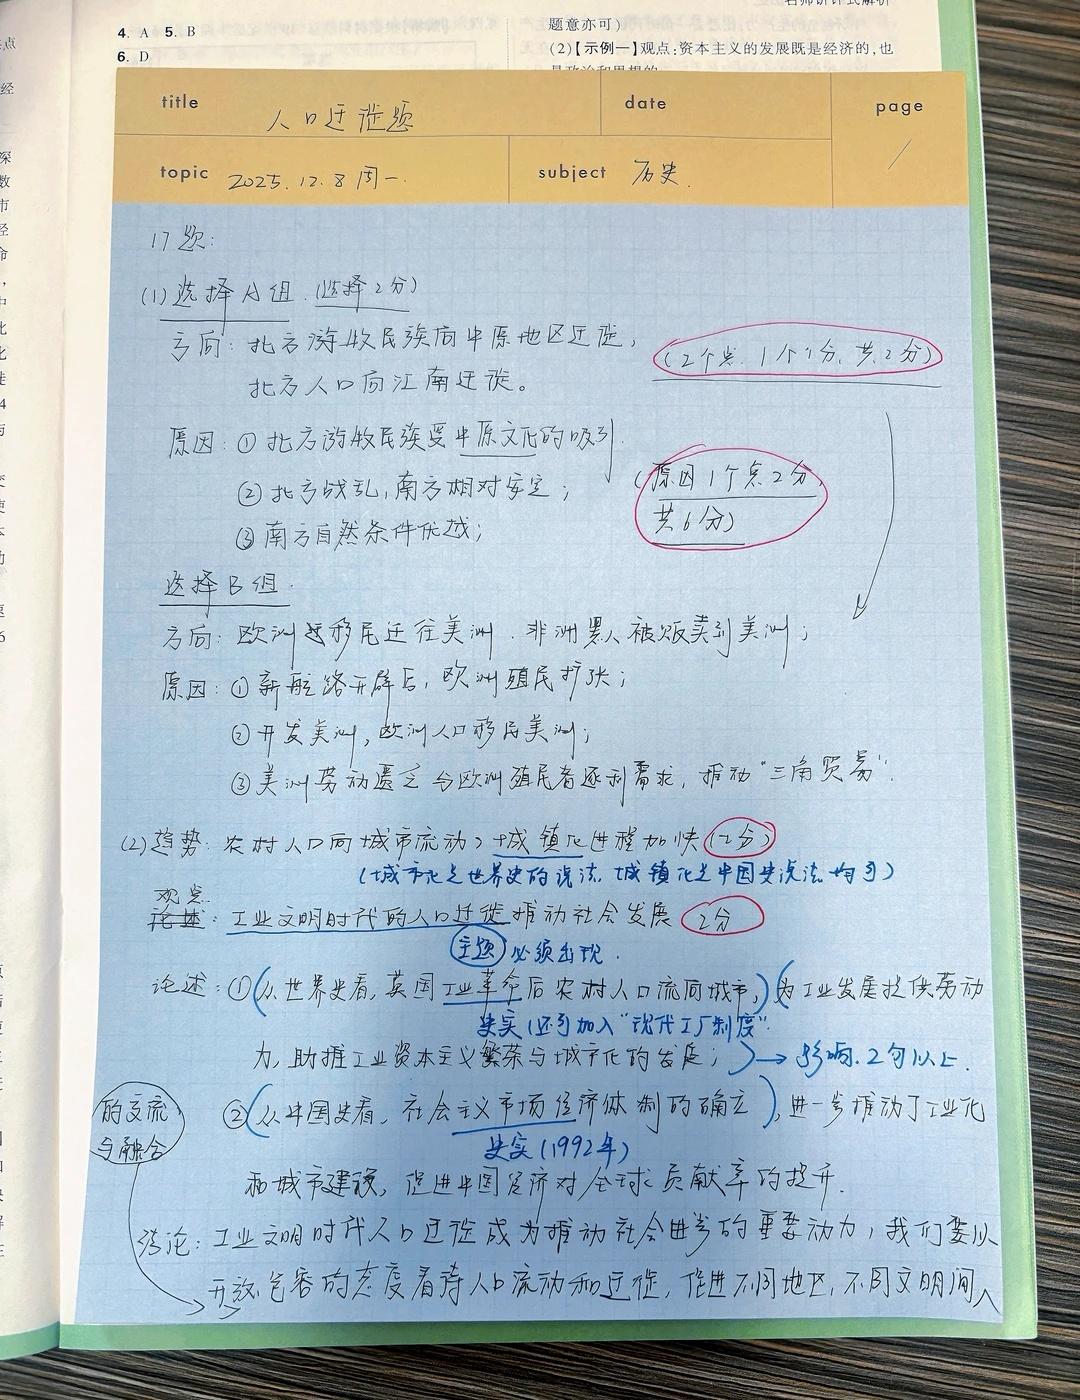 4. A  5. B
6. D
名师讲评式解析
题意亦可)
(2)【示例一】观点:资本主义的发展既是经济的,也
是政治和思想的
title 人口迁徙题
date
page 1
topic 2025.12.8 周一.
subject 历史.
17题:
(1)选择A组.(选择2分)
方向:北方游牧民族向中原地区迁徙,
(2个点.1个1分,共2分)
北方人口向江南迁徙。
原因:①北方游牧民族受中原文化的吸引.
②北方战乱,南方相对安定;
(原因1个点2分,
共6分)
③南方自然条件优越;
选择B组.
方向:欧洲移民迁往美洲.非洲黑人被贩卖到美洲;
原因:①新航路开辟后,欧洲殖民扩张;
②开发美洲,欧洲人口移民美洲;
③美洲劳动遗乏与欧洲殖民者逐利需求,推动"三角贸易".
(2)趋势:农村人口向城市流动;城镇化进程加快(2分)
(城市化是世界史的说法,城镇化是中国史说法.均可)
观点
论述:工业文明时代的人口迁徙推动社会发展 2分
主题 必须出现.
论述:①(从世界史看,英国工业革命后农村人口流向城市,)(为工业发展提供劳动
史实(还可加入"现代工厂制度".
力,助推工业资本主义繁荣与城市化的发展;)→影响.2句以上.
②(从中国史看,社会主义市场经济体制的确立),进一步推动了工业化
史实(1992年)
和城市建设,促进中国经济对全球贡献率的提升.
结论:工业文明时代人口迁徙成为推动社会进步的重要动力,我们要以
开放包容的态度看待人口流动和迁徙,促进不同地区,不同文明间人
的交流
与融合